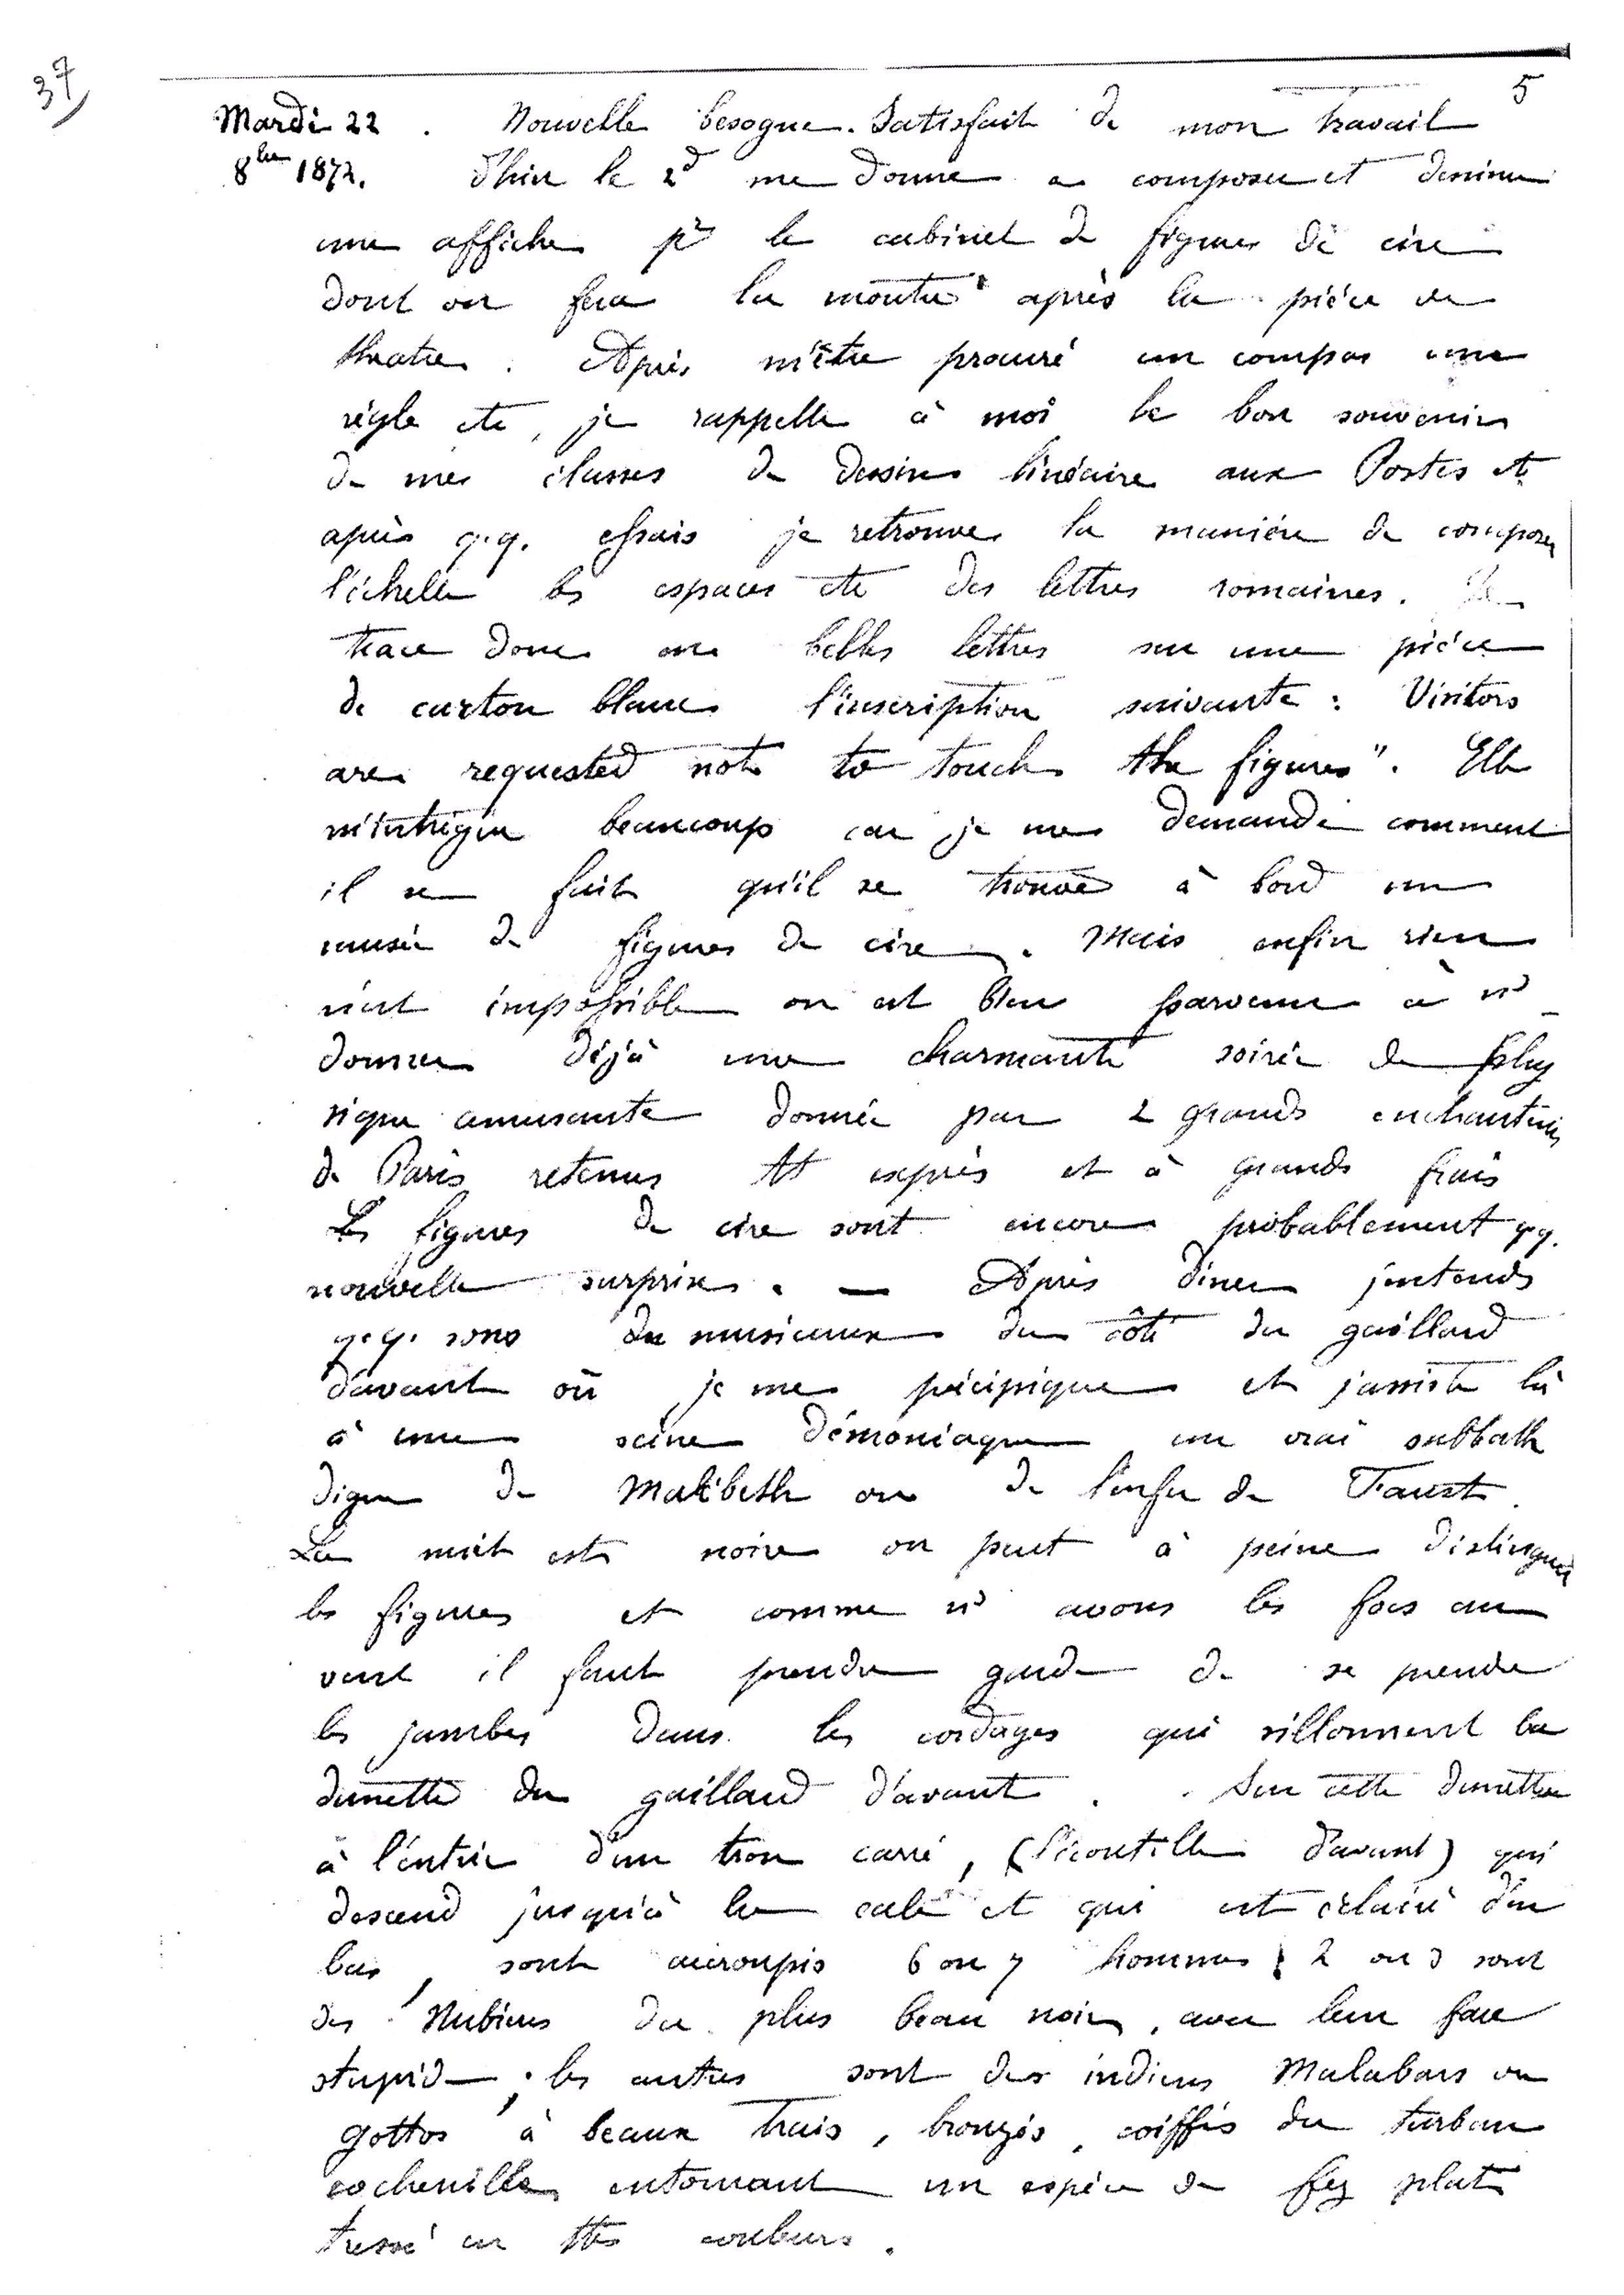 37)
5
Mardi 22 . Nouvelle besogne. Satisfait de mon travail
8bre 1872. d'hier le 2d me donne a composer et dessiner
une affiche pr le cabinet de figures de cire
dont on fera la montre après la pièce de
theatre. Après m'être procuré un compas une
règle etc, je rappelle à moi le bon souvenir
de mes classes de dessin linéaire aux Postes et
après q.q. essais je retrouve la manière de composer
l'échelle les espaces etc des lettres romaines. Je
trace donc en belles lettres sur une pièce
de carton blanc l'inscription suivante : Visitors
are requested not to touch the figures". Elle
m'intrigue beaucoup car je me demande comment
il se fait qu'il se trouve à bord un
musée de figures de cire. Mais enfin rien
n'est impossible on est bien parvenu à ns
donner déjà une charmante soirée de phy
sique amusante donnée par 2 grands enchanteurs
de Paris retenus tt exprès et à grands frais
Les figures de cire sont encore probablement qq.
nouvelle surprise. — Après diner j'entends
q.q. sons du musicaux du côté du gaillard
d'avant où je me précipique et j'assiste là
à une scène démoniaque un vrai sabbath
digne de Makbeth ou de l'enfer de Faust.
La nuit est noire on peut à peine distinguer
les figures et comme ns avons les focs au
vent il faut prendre garde de se prendre
les jambes dans les cordages qui sillonnent la
dunette du gaillard d'avant. Sur cette dunette
à l'entrée d'un trou carré, (l'écoutille d'avant) qui
descend jusqu'à la cale et qui est éclairé d'en
bas, sont accroupis 6 ou 7 hommes ; 2 ou 3 sont
des Nubiens du plus beau noir, avec leur face
stupide ; les autres sont des indiens Malabars ou
gottos à beaux traits, bronzés, coiffés du turban
cochenille entourant un espèce de fez plat
tressé en ttes couleurs.